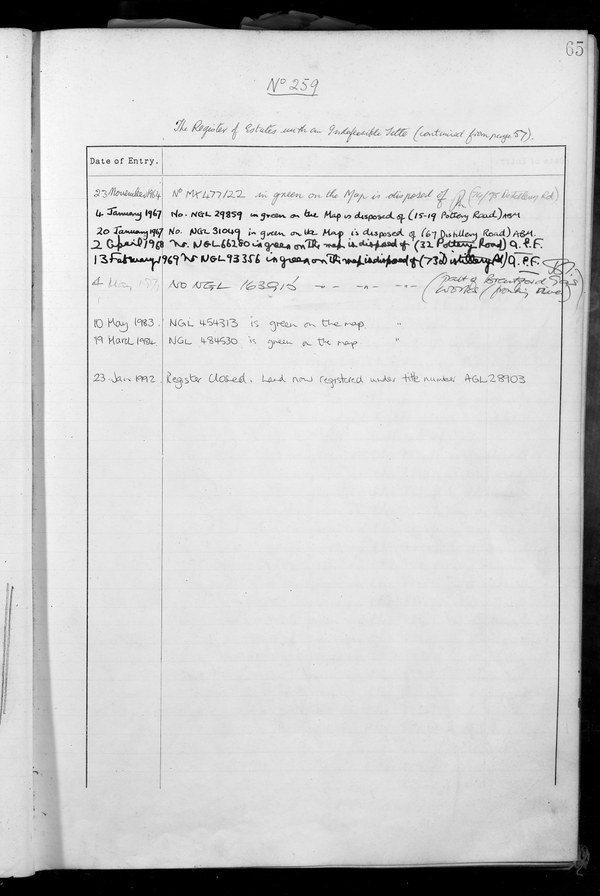 65
No 259
The Register of Estates with an Indefeasible Title (continued from page 57).
Date of Entry.
23 November 1964 No MX 477122 in green on the Map is disposed of (79/95 Distillery Rd)
4 January 1967 No. NGL 29859 in green on the Map is disposed of (15-19 Pottery Road) ABM
20 January 1967 No. NGL 31049 in green on the Map is disposed of (67 Distillery Road) ABM.
2 April 1968 No. NGL 66280 in green on the map is disposed of (32 Pottery Road) A.P.F.
13 February 1969 No NGL 93356 in green on the map is disposed of (73a Distillery Rd) A.P.F.
4 May NO NGL - - - " - - " - (part of Brentford Gas
Works fronting River)
10 May 1983. NGL 454313 is green on the map "
19 March 1984. NGL 484530 is green on the map "
23 Jan 1992. Register Closed. Land now registered under title number AGL 28903